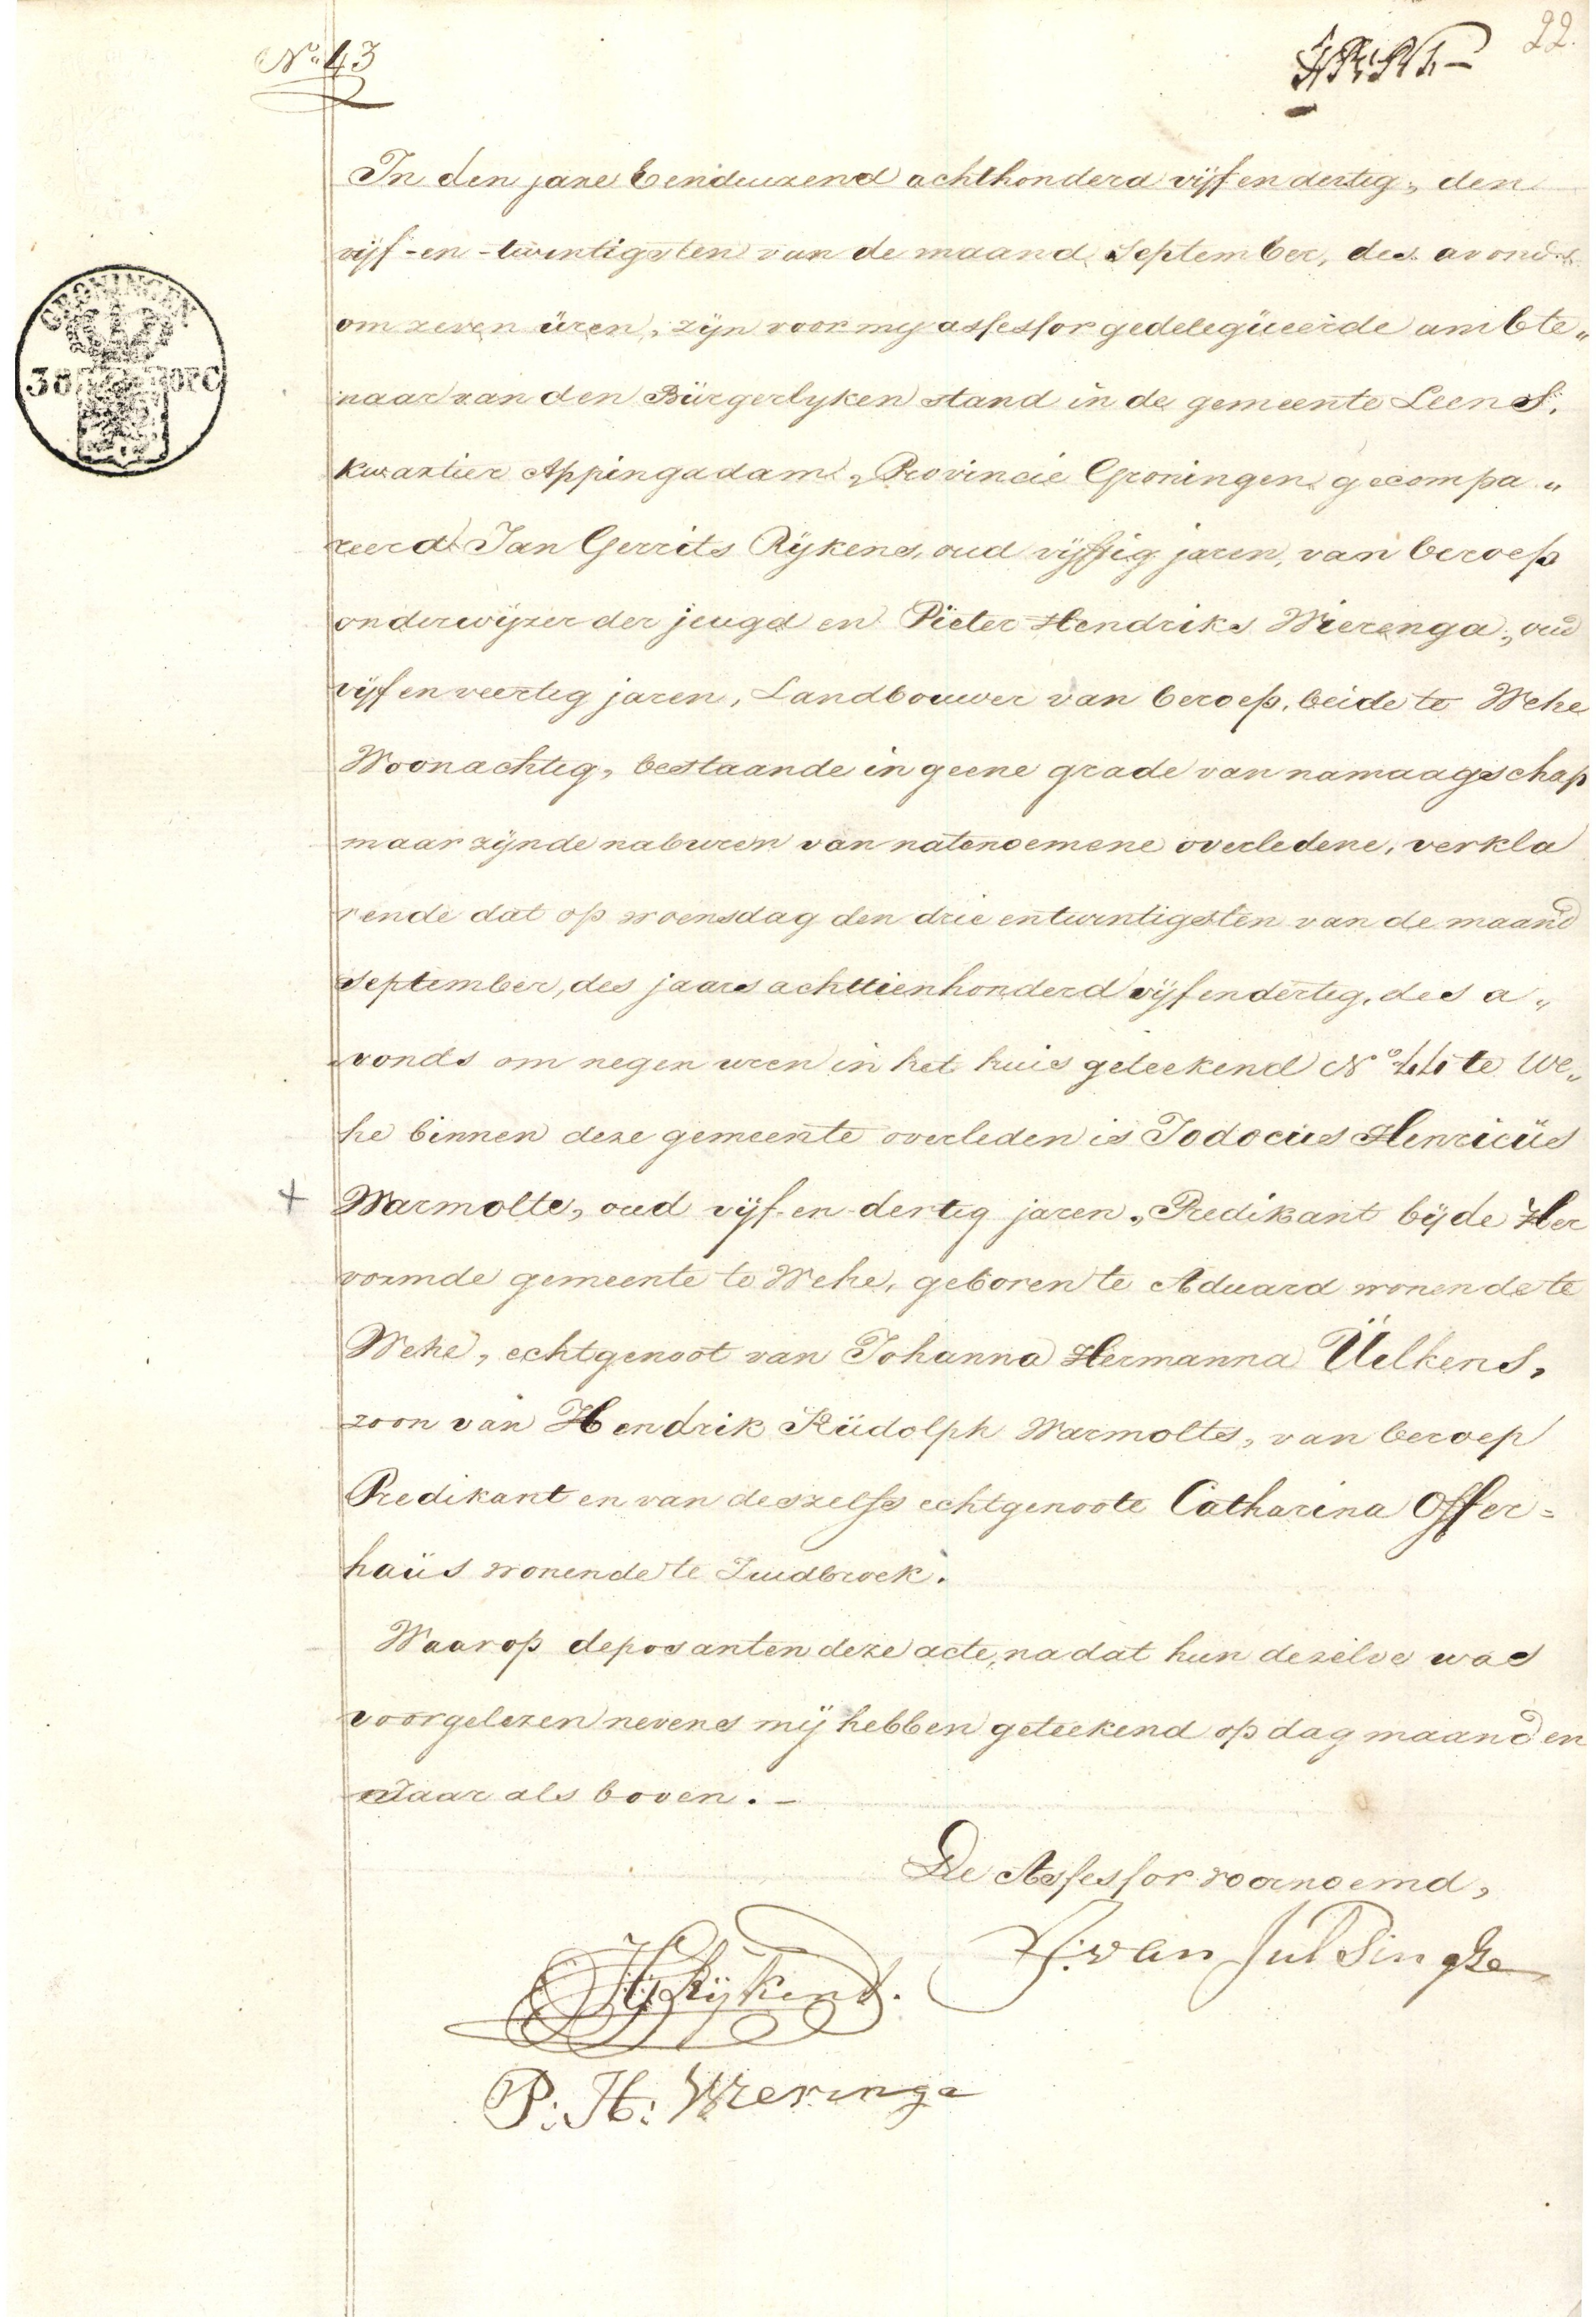 22.
No. 43
In den jare Eenduizend achthonderd vijf en dertig, den
vijf-en-twintigsten van de maand September, des avonds
om zeven üren, zijn voor my assessor gedelegüeerde ambte„
naar van den Bürgerlyken stand in de gemeente Leens,
kwartier Appingadam, Provincie Groningen gecompa„
reerd Jan Gerrits Rÿkens, oud vijftig jaren, van beroep
onderwijzer der jeugd en Pieter Hendriks Wierenga, oud
vijf en veertig jaren, Landbouwer van beroep, beide te Wehe
Woonachtig, bestaande in geene grade van namaagschap
maar zijnde naburen van natenoemene overledene, verkla
rende dat op woensdag den drie entwintigsten van de maand
September, des jaars achttienhonderd vijf en dertig, des a„
vonds om negen uren in het huis geteekend No 44 te We„
he binnen deze gemeente overleden is Jodocüs Henricüs
Warmolts, oud vijf-en-dertig jaren, Predikant bÿ de Her
vormde gemeente te Wehe, geboren te Aduard wonende te
Wehe, echtgenoot van Johanna Hermanna Üilkens,
zoon van Hendrik Rüdolph Warmolts, van beroep
Predikant en van deszelfs echtgenoote Catharina Offer=
haüs wonende te Zuidbroek.
Waarop deposanten deze acte, nadat hun dezelve was
voorgelezen nevens mÿ hebben geteekend op dag maand en
Jaar als boven. -
De Assessor voornoemd,
J. van Julsingha
JG Rÿkens.
P: H: Wierenga
GRONINGEN